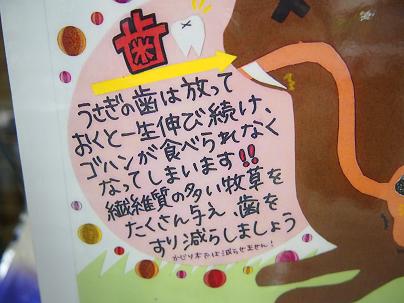 歯
うさぎの歯は放って
おくと一生伸び続け、
ゴハンが食べられなく
なってしまいます!!
繊維質の多い牧草を
たくさん与え、歯を
すり減らしましょう
かじり木では減らせません!